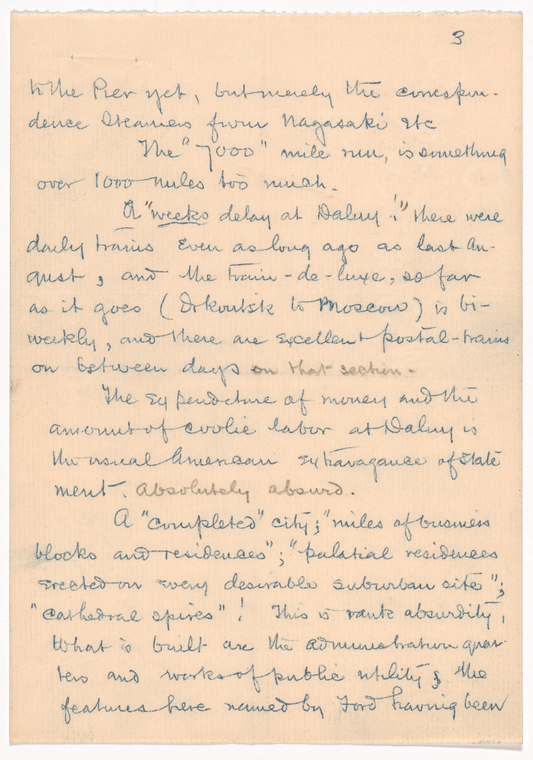 3
to the Pier yet, but merely the correspon-
dence steamers from Nagasaki etc
The "7000" mile run, is something
over 1000 miles too much.
A "weeks delay at Dalny!" there were
daily trains even as long ago as last Au-
gust, and the train-de-luxe, so far
as it goes (Irkoutsk to Moscow) is bi-
weekly, and there are excellent postal-trains
on between days on that section-
The expenditure of money and the
amount of coolie labor at Dalny is
the usual American extravagance of state
ment. Absolutely absurd.
A "completed" city; "miles of business
blocks and residences"; "palatial residences
erected on every desirable suburban site";
"cathedral spires"! This is rank absurdity,
What is built are the administration quar-
ters and works of public utility; the
features here named by Ford having been